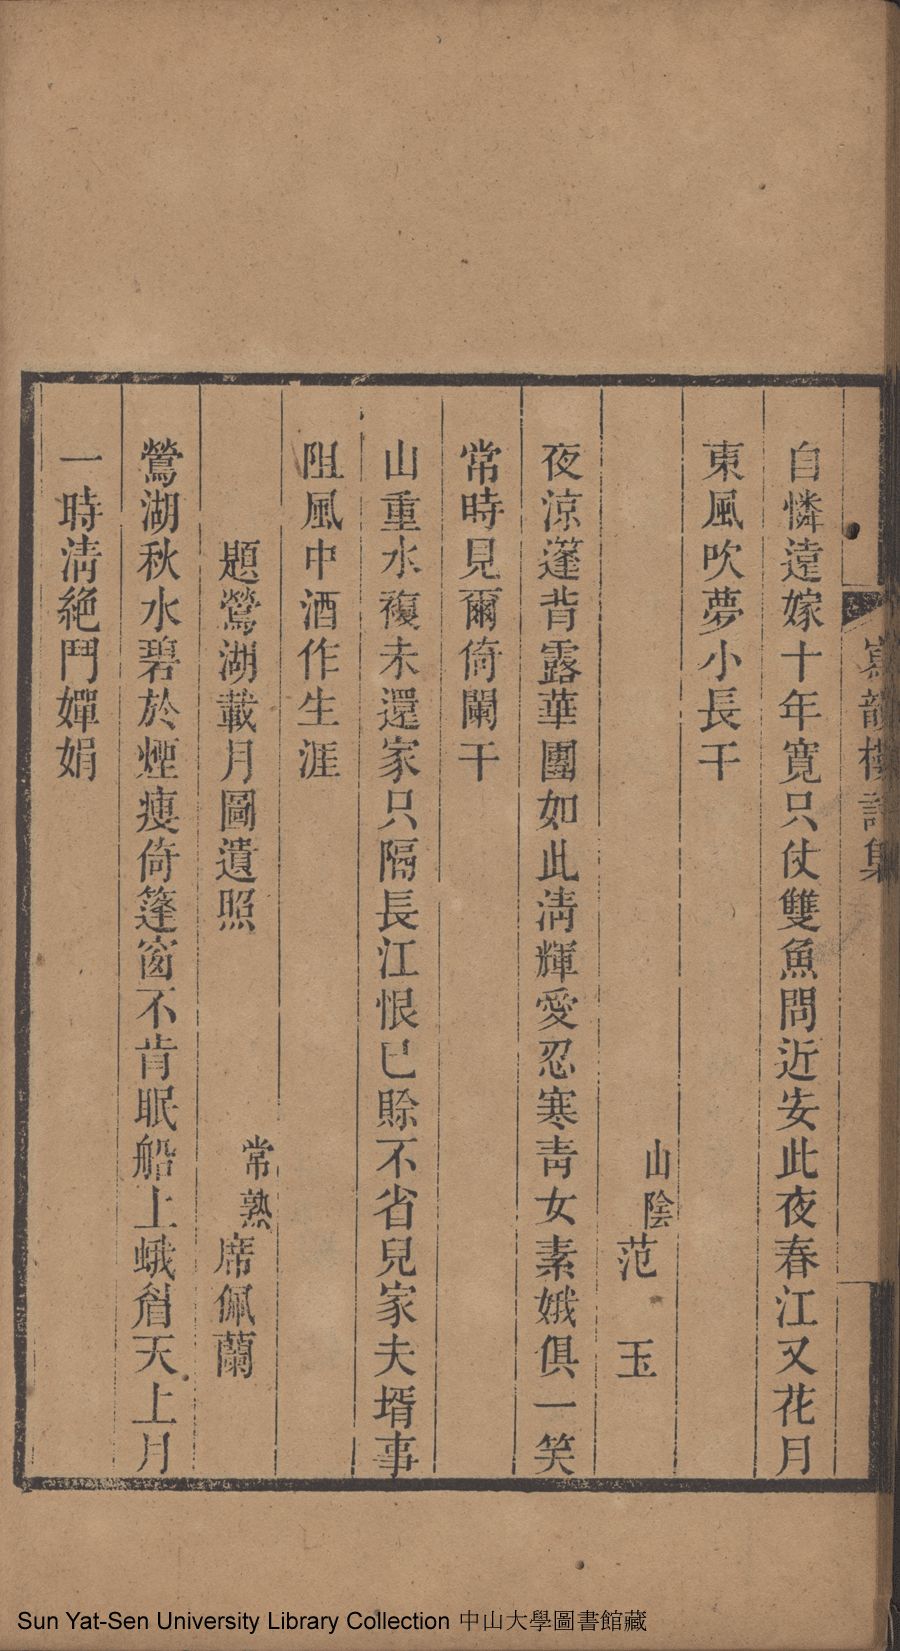 寫韻樓詩集
自憐遠嫁十年寬只仗雙魚問近安此夜春江又花月
東風吹夢小長干
山陰范玉
夜涼篷背露華團如此淸輝愛忍寒靑女素娥俱一笑
常時見爾倚闌干
山重水複未還家只隔長江恨已賒不省兒家夫壻事
阻風中酒作生涯
題鶯湖載月圖遺照
常熟席佩蘭
鶯湖秋水碧於煙瘦倚篷窗不肯眠船上蛾眉天上月
一時淸絕鬥嬋娟
Sun Yat-Sen University Library Collection 中山大學圖書館藏